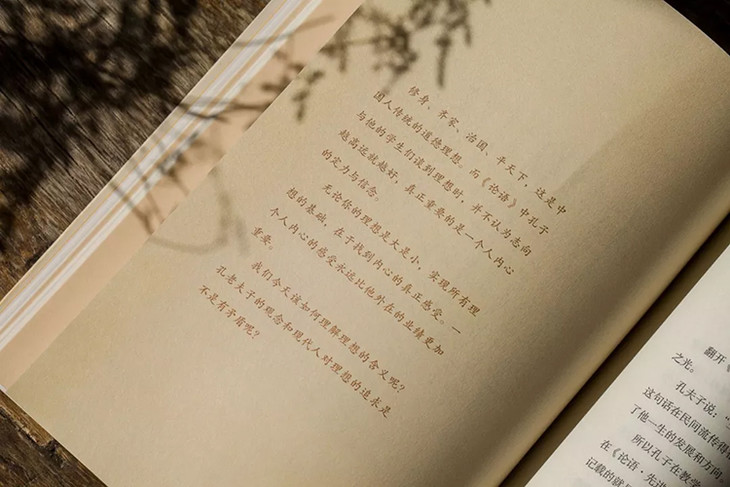 修身、齐家、治国、平天下，这是中
国人传统的道德理想。而《论语》中孔子
与他的学生们谈到理想时，并不认为志向
越高远就越好，真正重要的是一个人内心
的定力与信念。
无论你的理想是大是小，实现所有理
想的基础，在于找到内心的真正感受。一
个人内心的感受永远比他外在的业绩更加
重要。
我们今天该如何理解理想的含义呢？
孔老夫子的观念和现代人对理想的追求是
不是有矛盾呢？
翻开《
之光。
孔夫子说：“
这句话在民间流传得
了他一生的发展和方向
所以孔子在教学
在《论语·先进
记载的就是